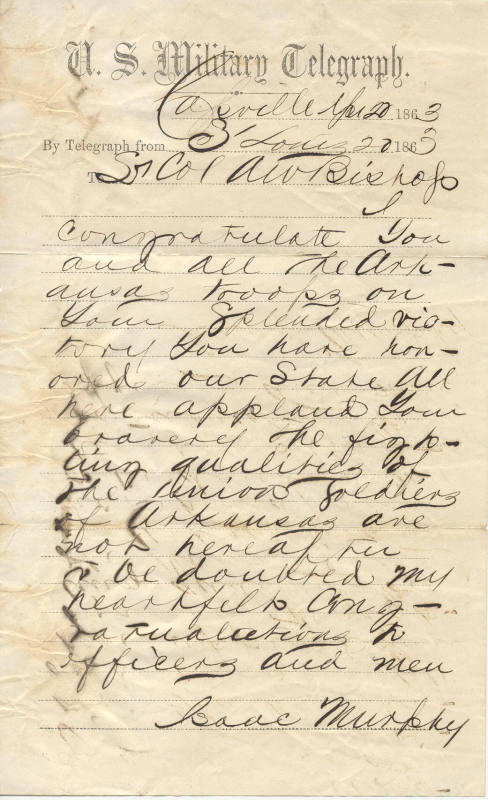 U. S. Military Telegraph.
Cassville Apl 20 1863
By Telegraph from St Louis 20 1863
To Lt Col A W Bishop
I
congratulate You
and all the Ark-
ansas troops on
Your Splended vic-
tory You have hon-
ored our State All
here applaud Your
bravery The figh-
ting qualities of
the Union Soldiers
of Arkansas are
not hereafter
to be doubted My
heartfelt Cong-
ratualations to
officers and men
Isaac Murphy